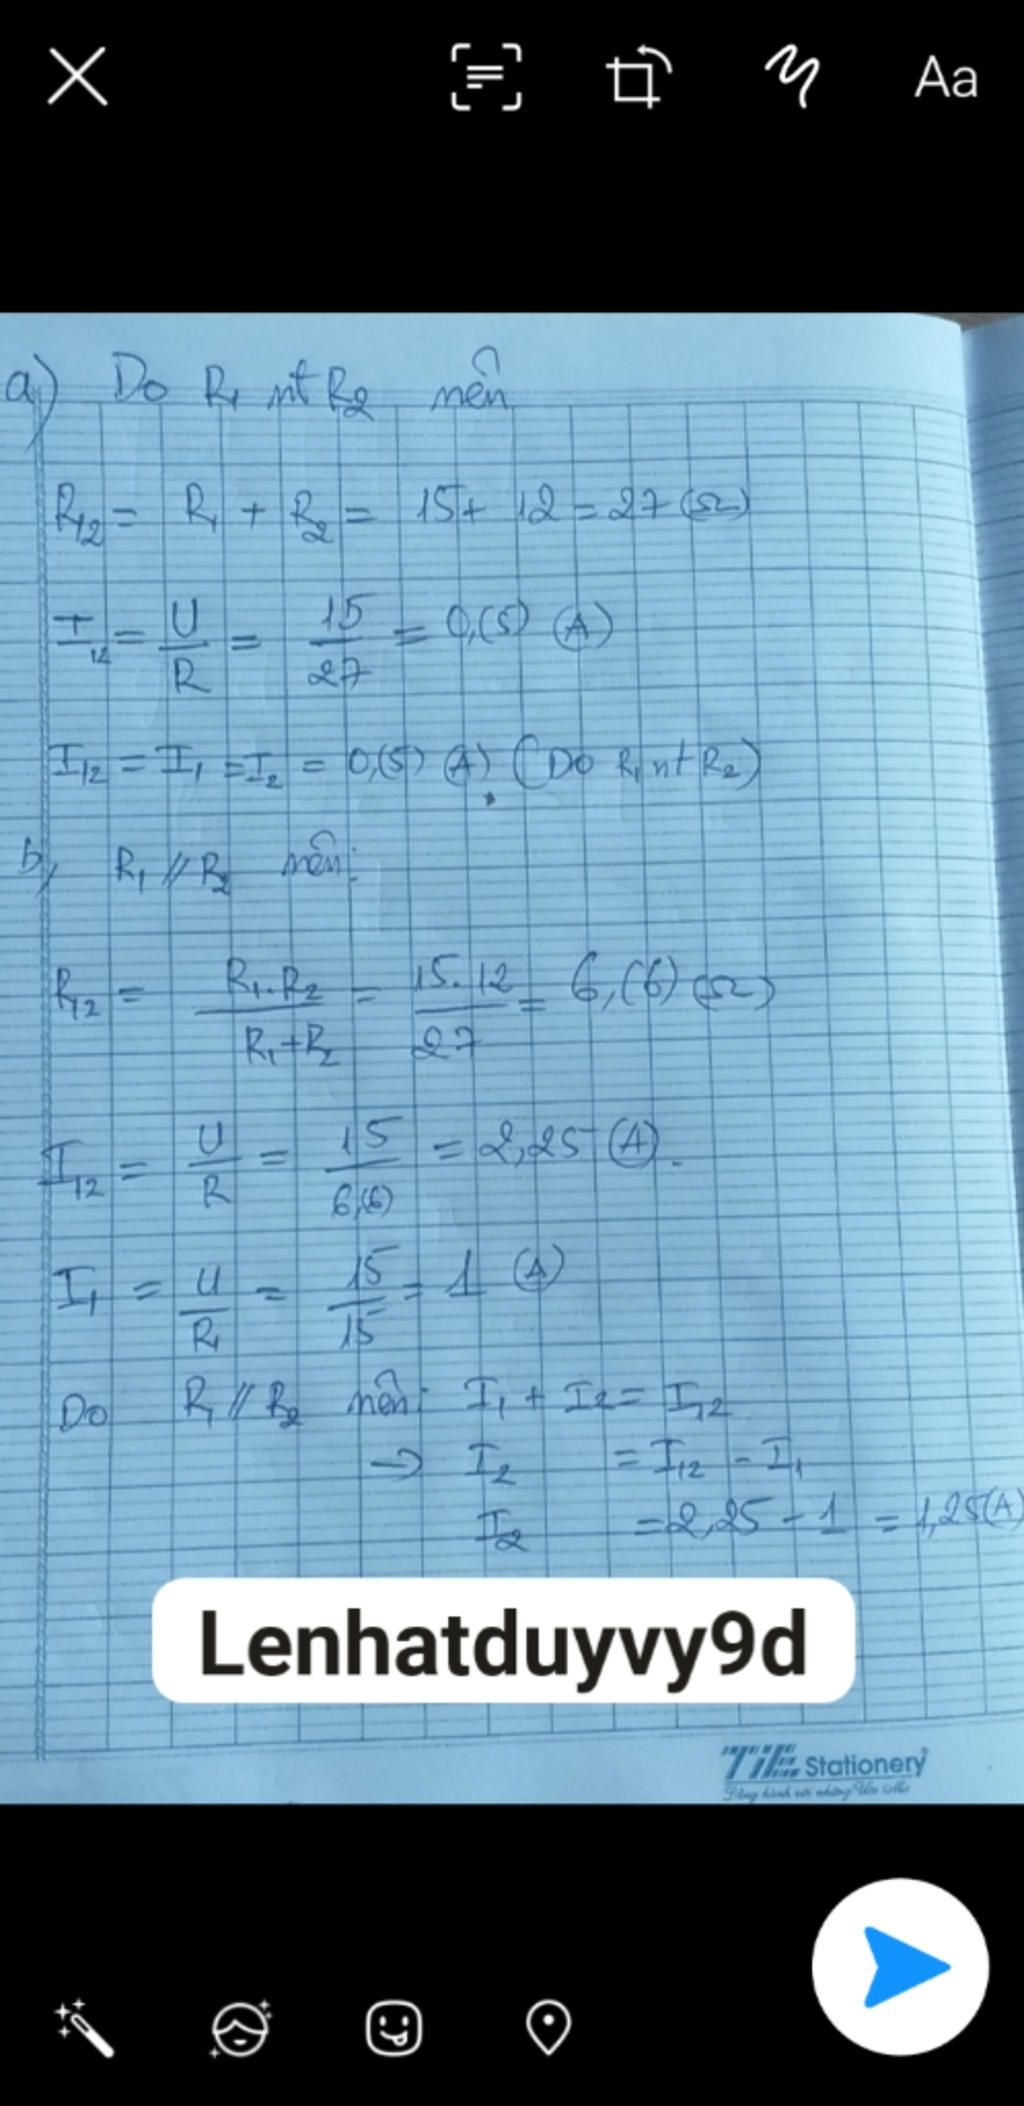 Aa
a) Do R₁ nt R₂ nên
R₁₂ = R₁ + R₂ = 15 + 12 = 27 (Ω)
I₁₂ = U/R = 15/27 = 0,(5) (A)
I₁₂ = I₁ = I₂ = 0,(5) (A). (Do R₁ nt R₂)
b, R₁ // R₂ nên:
R₁₂ = R₁.R₂/R₁+R₂ = 15.12/27 = 6,(6) (Ω)
I₁₂ = U/R = 15/6,(6) = 2,25 (A).
I₁ = U/R₁ = 15/15 = 1 (A)
Do R₁ // R₂ nên: I₁ + I₂ = I₁₂
→ I₂ = I₁₂ - I₁
I₂ = 2,25 - 1 = 1,25 (A)
Lenhatduyvy9d
TiE Stationery